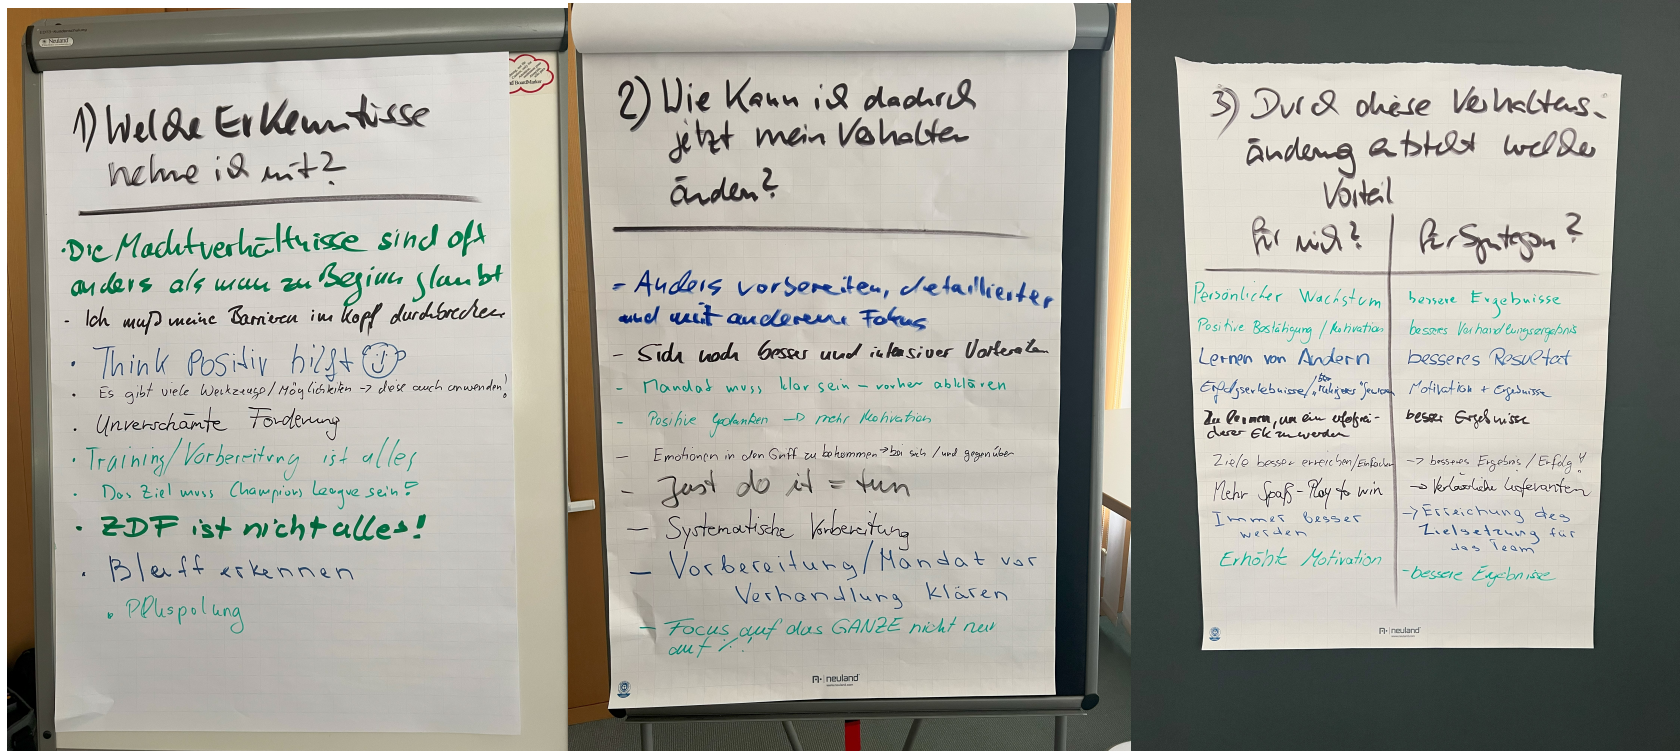 Neuland
BoardMarker
1) Welche Erkenntnisse
nehme ich mit?
· Die Machtverhältnisse sind oft
anders als man zu Beginn glaubt
- Ich muß meine Barrieren im Kopf durchbrechen
· Think Positiv hilft
· Es gibt viele Werkzeuge/Möglichkeiten → diese auch anwenden!
· Unverschämte Forderung
· Training/Vorbereitung ist alles
· Das Ziel muss Champions League sein!
· ZDF ist nicht alles!
· Bleuff erkennen
2) Wie kann ich dadurch
jetzt mein Verhalten
ändern?
- Anders vorbereiten, detaillierter
und mit anderem Fokus
- Sich noch besser und intensiver Vorbereiten
- Mandat muss klar sein – vorher abklären
- Positive Gedanken → mehr Motivation
- Emotionen in den Griff zu bekommen → bei sich / und gegenüber
- Just do it = tun
- Systematische Vorbereitung
- Vorbereitung/Mandat vor
Verhandlung klären
- Focus auf das GANZE nicht nur
auf %!
neuland
3) Durch diese Verhaltens-
änderung entsteht welcher
Vorteil
für mich?
Persönlicher Wachstum
Positive Bestätigung / Motivation
Lernen von Andern
Erfolgserlebnisse/
Zu lernen, um ein erfolgrei-
cherer EK zu werden
Ziele besser erreichen/Einfacher
Mehr Spaß - Play to win
Immer besser
werden
Erhöhte Motivation
für Syntegon?
bessere Ergebnisse
besseres Verhandlungsergebnis
besseres Resultat
Motivation + Ergebnisse
besser Ergebnisse
→ besseres Ergebnis / Erfolg!
→ Verlässliche Lieferanten
→ Erreichung des
Zielsetzung für
das Team
- bessere Ergebnisse
neuland